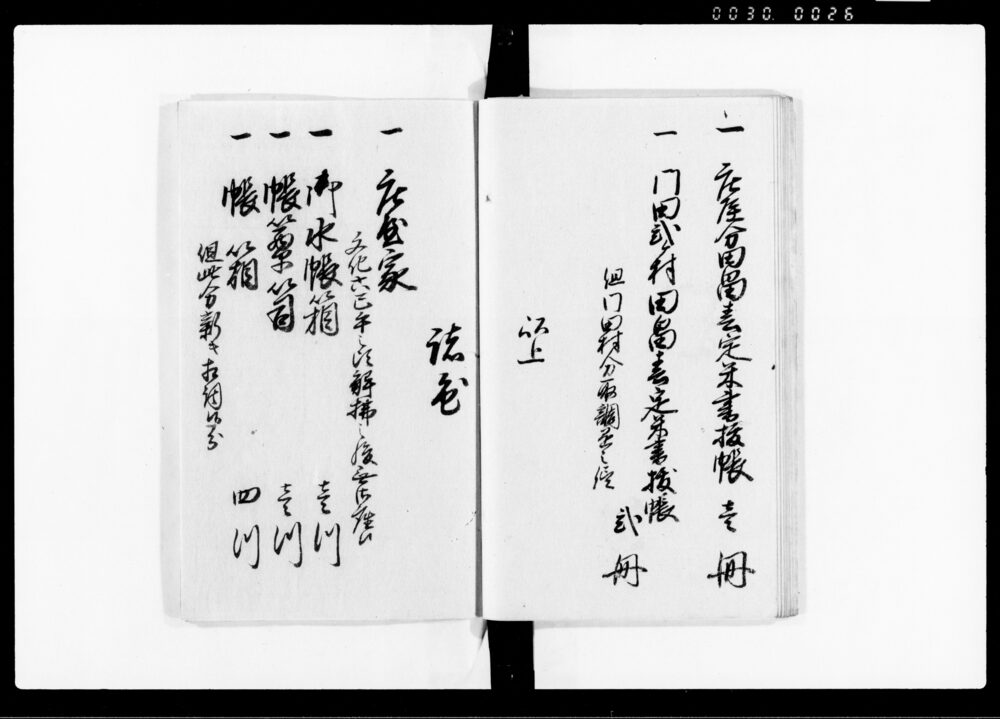 0030 0026
一 庄屋分田畠春定米書抜帳 壱冊
一 門田弐ヶ村田畠春定米書抜帳 弐冊
但門田村分取調
以上
諸色
一 庄屋家
文化六巳年 解拂之後無御座候
一 御水帳箱 壱ツ
一 帳箪笥 壱ツ
一 帳箱 四ツ
但此分新キ相調候分